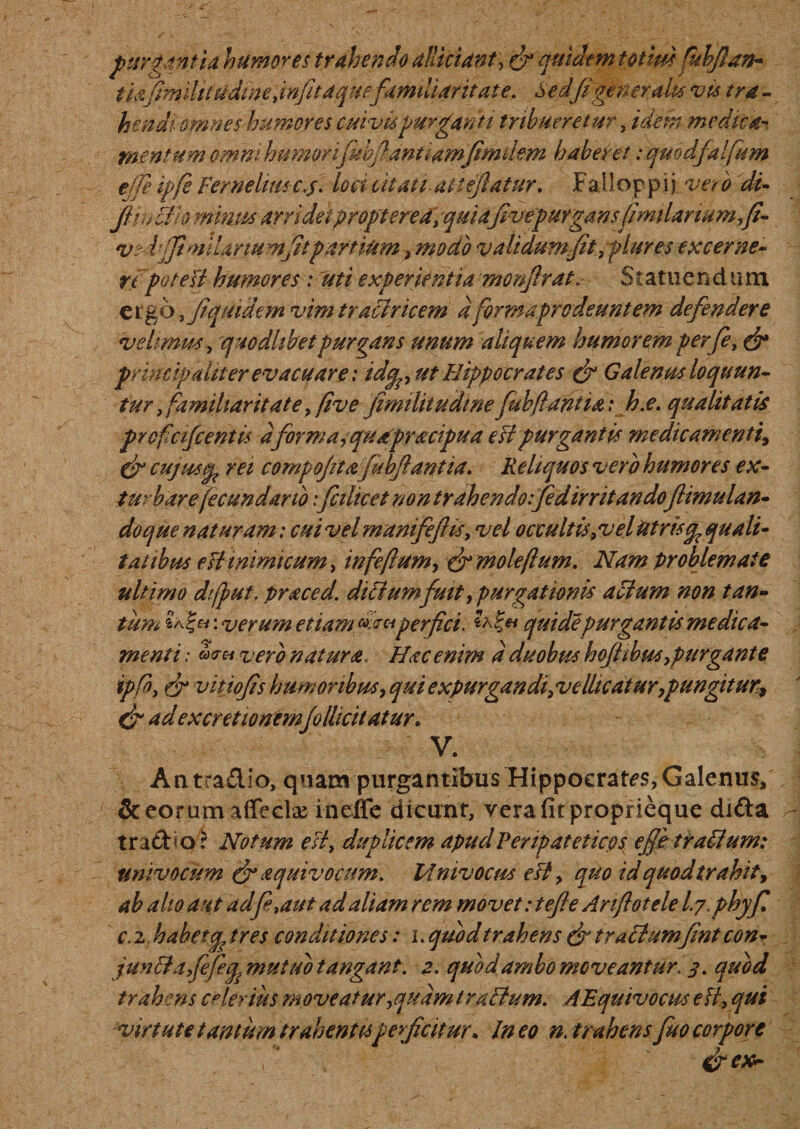 purgantia humores trahendo alliciant, & quidem totius ſubſtan-
tiæ ſimilitudine, inſitaque familiaritate. Sed ſi generalis vis tra-
hendi omnes humores cuivis purganti tribueretur, idem medica-
mentum omni humori ſubſtantiam ſimilem haberet: quod falſum
eſſe ipſe Fernelius c.5. loci citati atteſtatur. Falloppij vero di-
ſtinctio minus arridet propterea, quia ſive purgans ſimilarium, ſi-
ve diſſimilarium ſit partium, modo validum ſit, plures excerne-
re poteſt humores: uti experientia monſtrat. Statuendum
ergò, ſiquidem vim tractricem à forma prodeuntem defendere
velimus, quodlibet purgans unum aliquem humorem per ſe, &
principaliter evacuare: idq́;, ut Hippocrates & Galenus loquun-
tur, familiaritate, ſive ſimilitudine ſubſtantiæ: h.e. qualitatis
proficiſcentis à forma, quæ præcipua eſt purgantis medicamenti,
& cujusq́; rei compoſitæ ſubſtantia. Reliquos verò humores ex-
turbare ſecundariò: ſcilicet non trahendo: ſed irritando ſtimulan-
doque naturam: cui vel manifeſtis, vel occultis, vel utrisq́; quali-
tatibus eſt inimicum, infeſtum, & moleſtum. Nam problemate
ultimo diſput. præced. dictum fuit, purgationis actum non tan-
tùm ἕλξει: verum etiam ὤσει perfici. ἕλξει quidē purgantis medica-
menti: ὤσει verò naturæ. Hæc enim à duobus hoſtibus, purgante
ipſo, & vitioſis humoribus, qui expurgandi, vellicatur, pungitur,
& ad excretionem ſollicitatur.
V.
An tractio, quam purgantibus Hippocrates, Galenus,
& eorum aſſeclæ ineſſe dicunt, vera ſit proprièque dicta
tractio? Notum eſt, duplicem apud Peripateticos eſſe tractum:
univocum & æquivocum. Univocus eſt, quo id quod trahit,
ab alio aut ad ſe, aut ad aliam rem movet: teſte Ariſtotele l.7. phyſ.
c.2. habetq́; tres conditiones: 1. quòd trahens & tractum ſint con-
juncta, ſeſeq́; mutuò tangant. 2. quòd ambo moveantur. 3. quòd
trahens celeriùs moveatur, quàm tractum. AEquivocus eſt, qui
virtute tantùm trahentis perficitur. In eo n. trahens ſuo corpore
& ex-